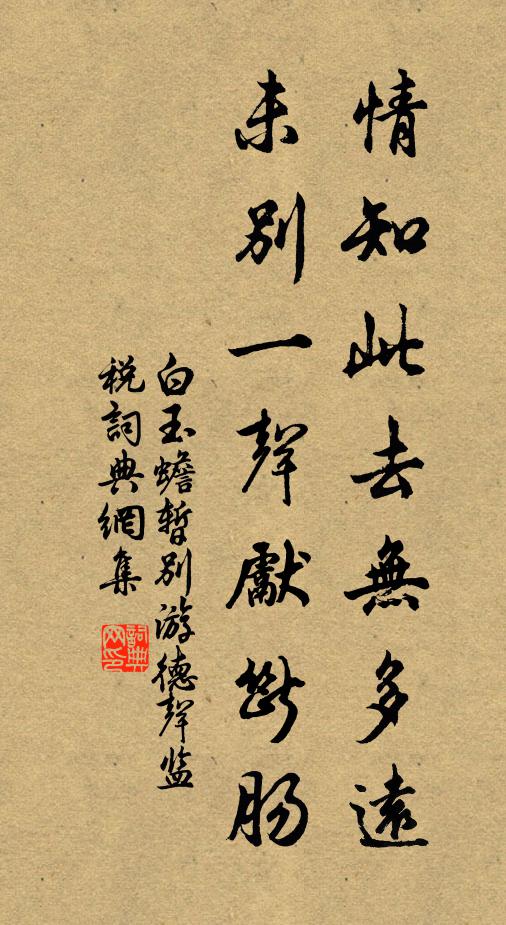 情知此去無多遠
未別一聲獻斷腸
白玉蟾暫別游德聲监
税詞典網集
詞典网印